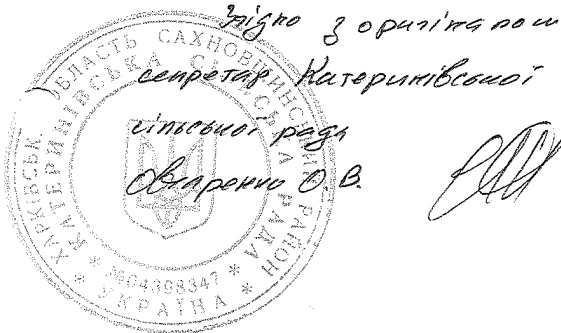 Згідно з оригіналом
секретар Катеринівської
сільської ради
О. В.
ХАРКІВСЬК. ОБЛАСТЬ САХНОВЩИНСЬКИЙ РАЙОН
КАТЕРИНІВСЬКА СІЛЬСЬКА РАДА
* №04398347 *
* УКРАЇНА *